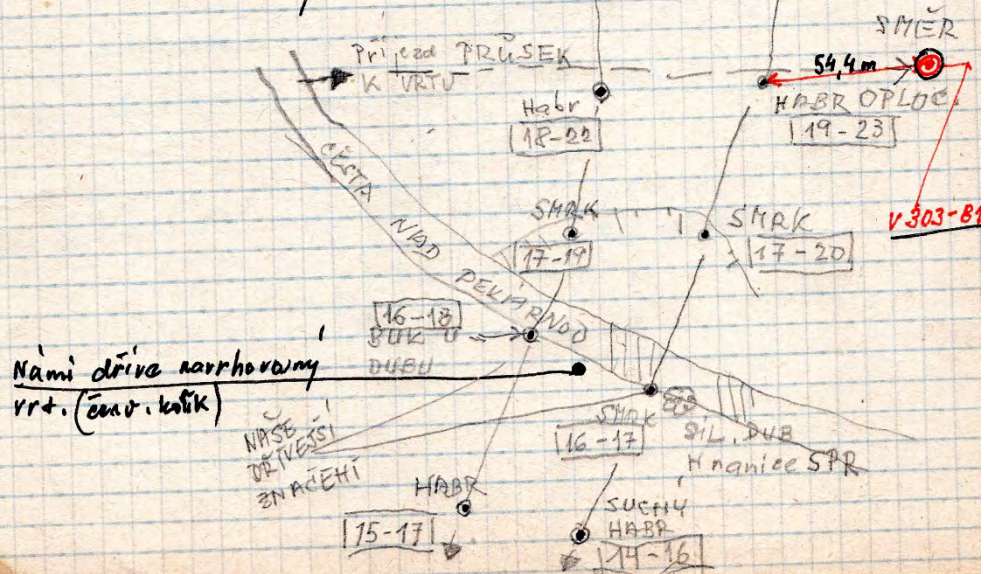 SMĚR
Příjezd PRŮSEK
K VRTU
54,4 m
Habr
18-22
HABR OPLOC.
19-23
CESTA NAD PEKÁRNOU
SMRK
17-19
SMRK
17-20
V303-81
16-18
BUK U
DUBU
Námi dříve navrhovaný
vrt. (červ. kolík)
NAŠE
DŘÍVEJŠÍ
ZNAČENÍ
SMRK
16-17
SIL. DUB
Hranice SPR
HABR
15-17
SUCHÝ
HABR
14-16